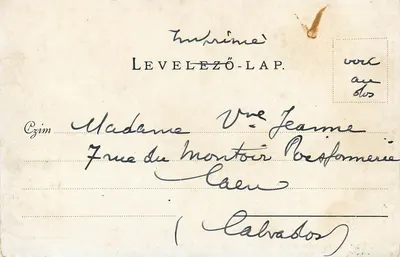 Imprimé
LEVELEZŐ-LAP.
voir
au
dos
Czím Madame Vve Jeanne
7 rue du Montoir Poissonnerie
Caen
(Calvados)